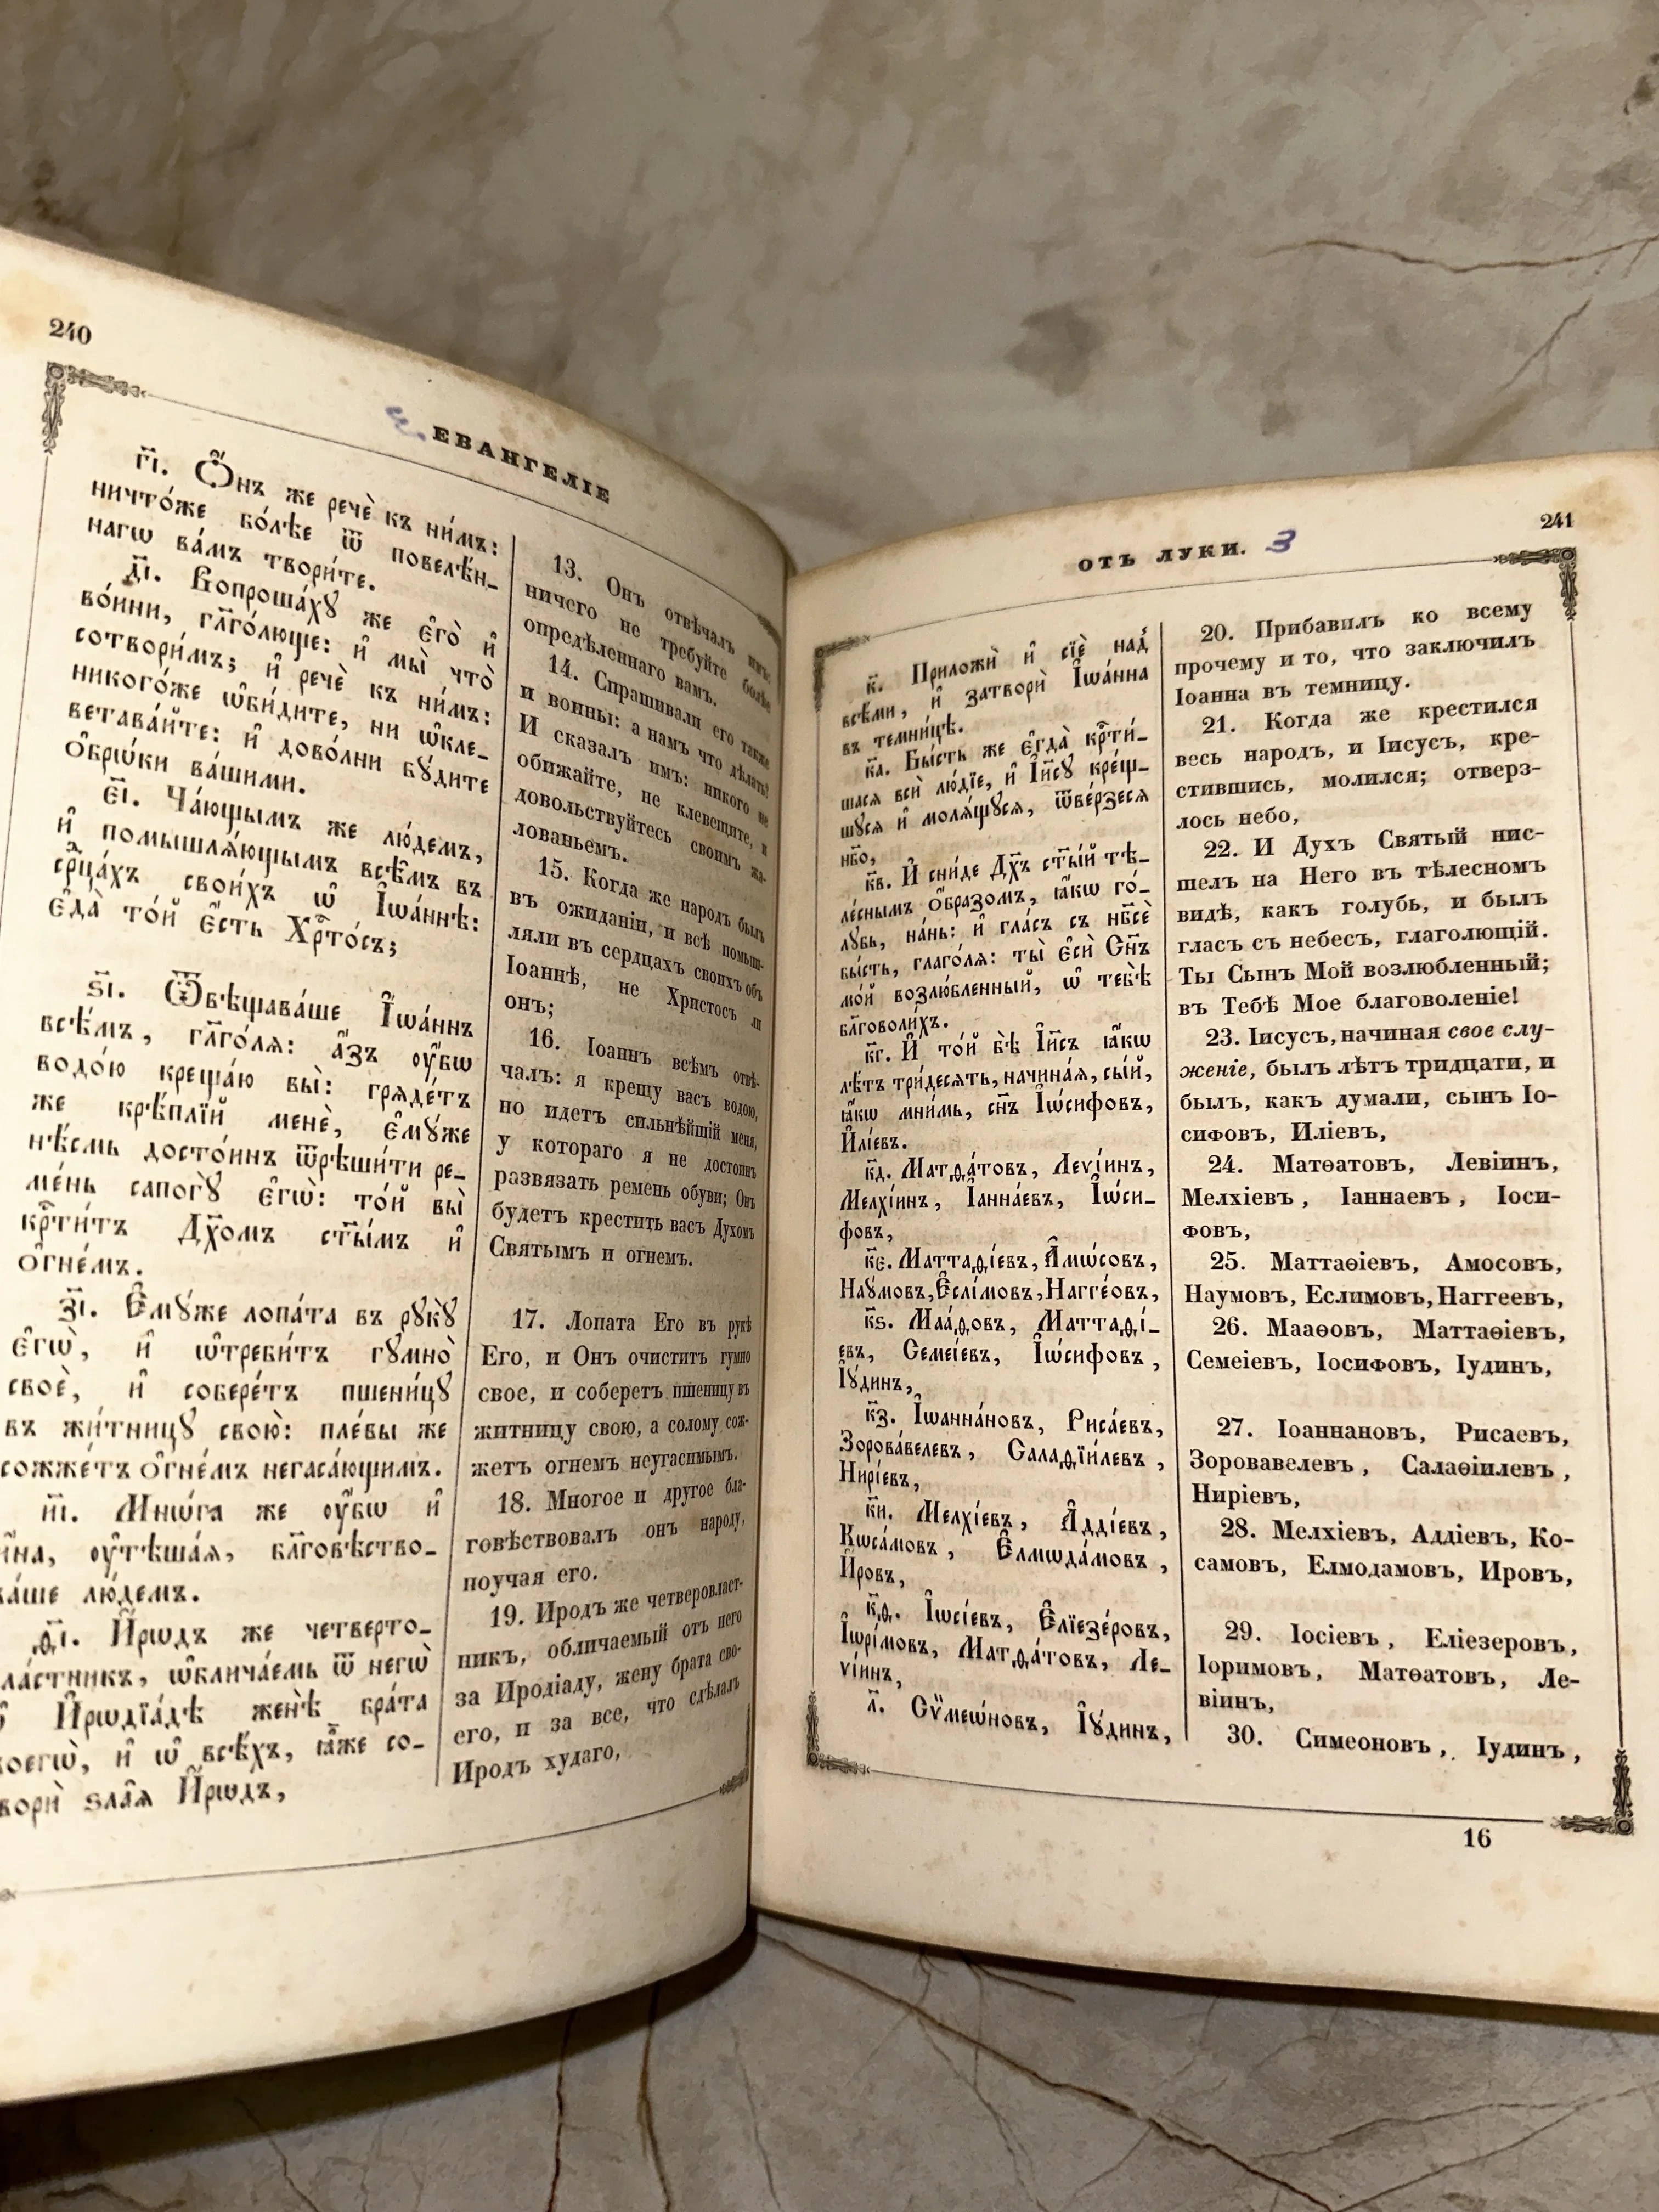 240
ЕВАНГЕЛІЕ
г҃і. Ѻ҆́нъ же речѐ къ ни̑мъ:
ничто́же бо́лѣе ѿ повелѣ́н-
нагѡ ва́мъ твори́те.
д҃і. Вопроша́хꙋ же є҆го̀ и҆
во́ини, гл҃го́люще: и҆ мы̀ что̀
сотвори́мъ; и҆ речѐ къ ни̑мъ:
никого́же ѡ҆би́дите, ни ѡ҆кле-
ветава́йте: и҆ дово́лни бꙋ́дите
ѻ҆брѡ́ки ва́шими.
є҃і. Ча́ющымъ же лю́демъ,
и҆ помышлѧ́ющымъ всѣ̑мъ въ
срⷣца́хъ свои́хъ ѡ҆ І҆ѡа́ннѣ:
є҆да̀ то́й є҆́сть Хрⷭ҇то́съ;
ѕ҃і. Ѿвѣщава́ше І҆ѡа́ннъ
всѣ̑мъ, гл҃го́лѧ: а҆́зъ ѹ҆́бѡ
водо́ю креща́ю вы̀: грѧде́тъ
же крѣ́плїй менѐ, є҆мꙋ́же
нѣ́смь досто́инъ ѿрѣши́ти ре-
ме́нь сапогꙋ̀ є҆гѡ̀: то́й вы̀
крⷭ҇ти́тъ Дх҃омъ ст҃ы́мъ и҆
ѻ҆гне́мъ.
з҃і. Є҆мꙋ́же лопа́та въ рꙋкꙋ̀
є҆гѡ̀, и҆ ѡ҆треби́тъ гꙋмно̀
своѐ, и҆ собере́тъ пшени́цꙋ
въ жи́тницꙋ свою̀: пле́вы же
сожже́тъ ѻ҆гне́мъ негаса́ющимъ.
и҃і. Мнѡ́га же ѹ҆́бѡ и҆
и҆́на, ѹ҆тѣша́ѧ, бл҃говѣство-
ва́ше лю́демъ.
ѳ҃і. И҆́рѡдъ же четверто-
вла́стникъ, ѡ҆блича́емь ѿ негѡ̀
И҆рѡдїа́дѣ женѣ̀ бра́та
своегѡ̀, и҆ ѡ҆ всѣ́хъ, ꙗ҆̀же со-
творѝ ѕла̑ѧ И҆́рѡдъ,
13. Онъ отвѣчалъ имъ:
ничего не требуйте болѣе
опредѣленнаго вамъ.
14. Спрашивали его также
и воины: а намъ что дѣлать?
И сказалъ имъ: никого не
обижайте, не клевещите, и
довольствуйтесь своимъ жа-
лованьемъ.
15. Когда же народъ былъ
въ ожиданіи, и всѣ помыш-
ляли въ сердцахъ своихъ объ
Іоаннѣ, не Христосъ ли
онъ;
16. Іоаннъ всѣмъ отвѣ-
чалъ: я крещу васъ водою,
но идетъ сильнѣйшій меня,
у котораго я не достоинъ
развязать ремень обуви; Онъ
будетъ крестить васъ Духомъ
Святымъ и огнемъ.
17. Лопата Его въ рукѣ
Его, и Онъ очиститъ гумно
свое, и соберетъ пшеницу въ
житницу свою, а солому сож-
жетъ огнемъ неугасимымъ.
18. Многое и другое бла-
говѣствовалъ онъ народу,
поучая его.
19. Иродъ же четверовласт-
никъ, обличаемый отъ него
за Иродіаду, жену брата сво-
его, и за все, что сдѣлалъ
Иродъ худаго,
241
ОТЪ ЛУКИ. 3
к҃. Приложѝ и҆ сїѐ над̾
всѣ́ми, и҆ затворѝ І҆ѡа́нна
въ темни́цѣ.
к҃а. Бы́сть же є҆гда̀ крⷭ҇ти́-
шасѧ всѝ лю́дїе, и҆ І҆и҃сꙋ кре́щ-
шꙋсѧ и҆ молѧ́щꙋсѧ, ѿве́рзесѧ
нб҃о,
к҃в. И҆ сни́де Дх҃ъ ст҃ы́й тѣ-
ле́снымъ ѻ҆́бразомъ, ꙗ҆́кѡ го́-
лꙋбь, на́нь: и҆ гла́съ съ нб҃сѐ
бы́сть, глаго́лѧ: ты̀ є҆сѝ Сн҃ъ
мо́й возлю́бленный, ѡ҆ тебѣ̀
бл҃говоли́хъ.
к҃г. И҆ то́й бѣ̀ І҆и҃съ ꙗ҆́кѡ
лѣ́тъ три́десѧть, начина́ѧ, сы́й,
ꙗ҆́кѡ мни́мь, сн҃ъ І҆ѡ́сифовъ,
И҆лі́евъ.
к҃д. Матѳа́товъ, Леѵі́инъ,
Мелхі́инъ, І҆анна́евъ, І҆ѡ́си-
фовъ,
к҃є. Маттаѳі́евъ, А҆мѡ́совъ,
Наꙋ́мовъ, Є҆слі́мовъ, Нагге́овъ,
к҃ѕ. Маа́ѳовъ, Маттаѳі́-
евъ, Семеі́евъ, І҆ѡ́сифовъ,
І҆ꙋ́динъ,
к҃з. І҆ѡанна́новъ, Риса́евъ,
Зорова́велевъ, Салаѳїи́левъ,
Нирі́евъ,
к҃и. Мелхі́евъ, А҆дді́евъ,
Кѡса́мовъ, Є҆лмѡда́мовъ,
И҆́ровъ,
к҃ѳ. І҆ѡсі́евъ, Є҆лїезе́ровъ,
І҆ѡрі́мовъ, Матѳа́товъ, Ле-
ѵі́инъ,
л҃. Сѷмеѡ́новъ, І҆ꙋ́динъ,
20. Прибавилъ ко всему
прочему и то, что заключилъ
Іоанна въ темницу.
21. Когда же крестился
весь народъ, и Іисусъ, кре-
стившись, молился; отверз-
лось небо,
22. И Духъ Святый нис-
шелъ на Него въ тѣлесномъ
видѣ, какъ голубь, и былъ
гласъ съ небесъ, глаголющій.
Ты Сынъ Мой возлюбленный;
въ Тебѣ Мое благоволеніе!
23. Іисусъ, начиная свое слу-
женіе, былъ лѣтъ тридцати, и
былъ, какъ думали, сынъ Іо-
сифовъ, Иліевъ,
24. Матѳатовъ, Левіинъ,
Мелхіевъ, Іаннаевъ, Іоси-
фовъ,
25. Маттаѳіевъ, Амосовъ,
Наумовъ, Еслимовъ, Наггеевъ,
26. Мааѳовъ, Маттаѳіевъ,
Семеіевъ, Іосифовъ, Іудинъ,
27. Іоаннановъ, Рисаевъ,
Зоровавелевъ, Салаѳіилевъ,
Ниріевъ,
28. Мелхіевъ, Аддіевъ, Ко-
самовъ, Елмодамовъ, Ировъ,
29. Іосіевъ, Еліезеровъ,
Іоримовъ, Матѳатовъ, Ле-
віинъ,
30. Симеоновъ, Іудинъ,
16